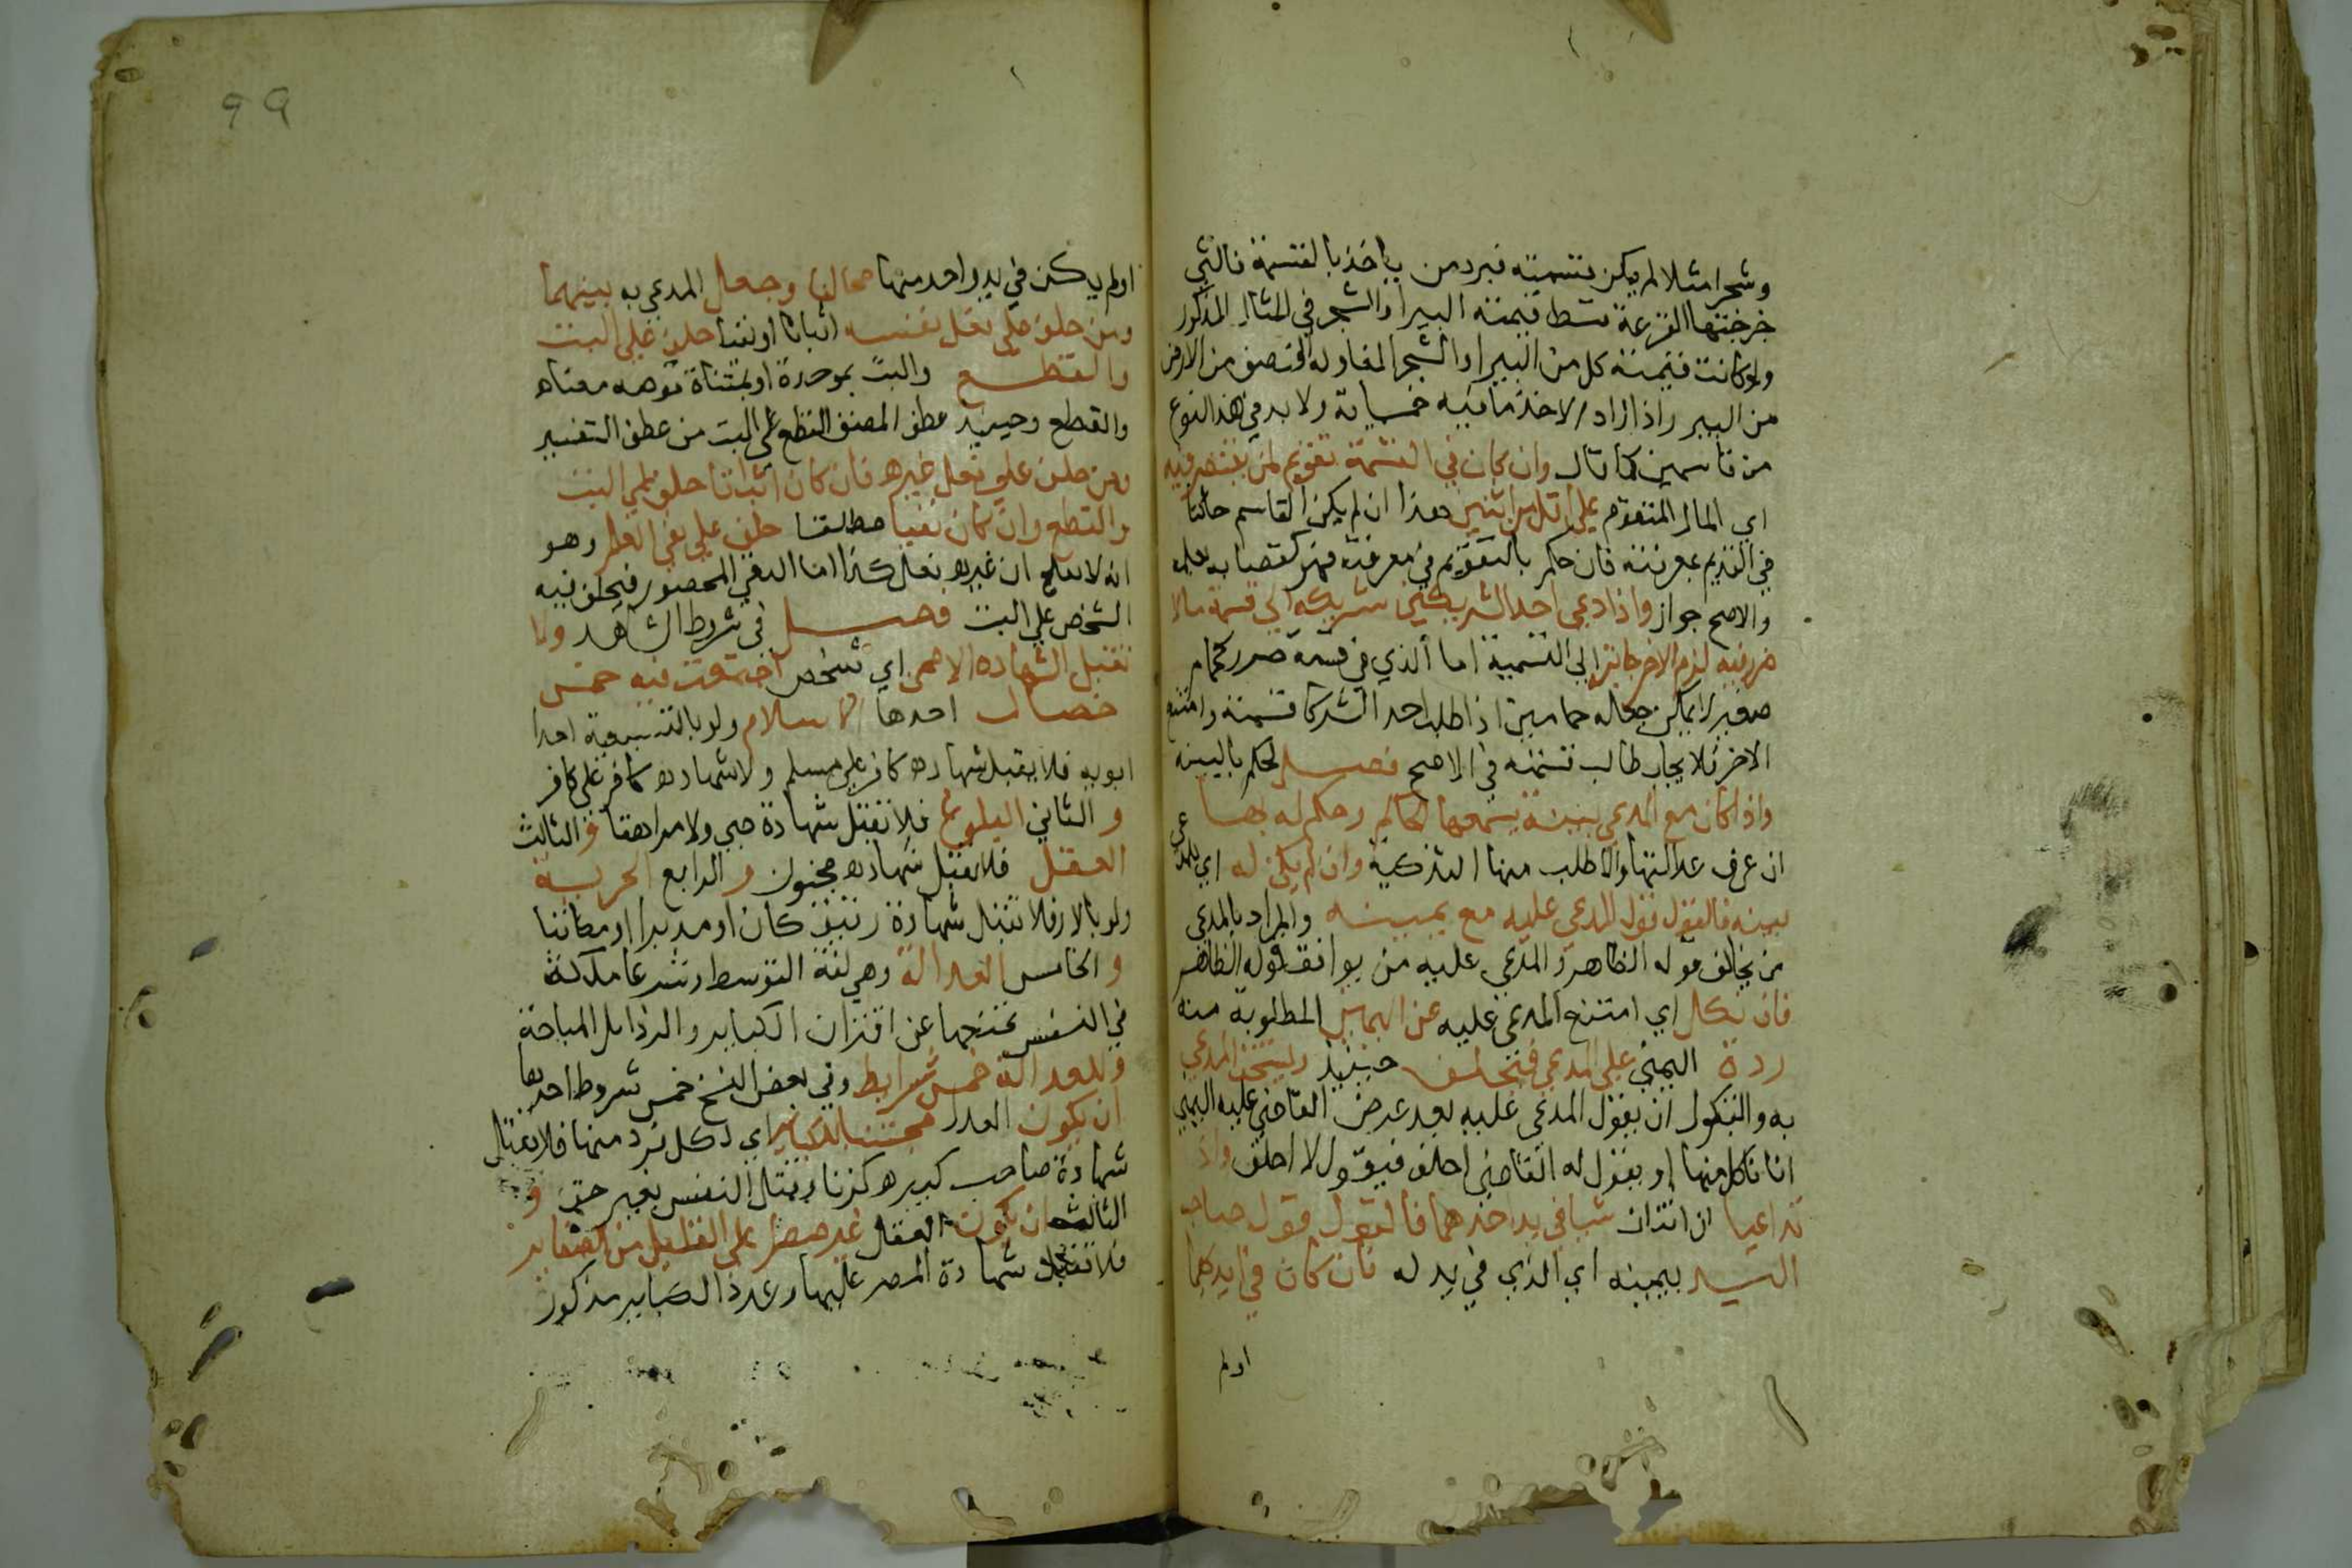 وشجر مثلا لم يمكن قسمته فيرد من ياخذ بالقسمة فالتي
خرجتها القرعة قسط قيمته البير او الشجر في المثال المذكور
ولو كانت قيمته كل من البير او الشجر الفا وله النصف من الارض
من البير واذا اراد الاخذ ما فيه خمسماية ولا بد في هذا النوع
من قاسمين كما قال وان كان في القسمة تقويم لم يقتصر فيه
اي المال المتقوم علي اقل من اثنين وهذا ان لم يكن القاسم حاكما
في التقويم بمعرفته فان حكم بالتقويم في معرفته فهو كقضايه بعلمه
والاصح جوازه واذا دعي احد الشريكين شريكه الي قسمة مالا
ضرر فيه لزم الاخر جابته الي القسمة اما الذي في قسمته ضرر كحمام
صغير لا يمكن جعله حمامين اذا طلب احد الشركا قسمته وامتنع
الاخر فلا يجاب طالب قسمته في الاصح فصل لحكم بالبينه
واذا كان مع المدعي بينة يسمعها الحاكم وحكم له بها
ان عرف عدالتها والا طلب منها التذكية وان لم يكن له اي للمدعي
بينه فالقول قول المدعي عليه مع يمينه والمراد بالمدعي
من يخالف قوله الظاهر والمدعي عليه من يوافق قوله الظاهر
فان نكل اي امتنع المدعي عليه عن اليمين المطلوبة منه
ردة اليمين علي المدعي فيتحلف حينيذ ويستحق المدعي
به والنكول ان يقول المدعي عليه بعد عرض القاضي عليه اليمين
انا ناكل منها او يقول له القاضي احلف فيقول لا احلف واذا
تداعيا ان اثنان شيا في يد احدهما فالقول قول صاحب
اليد بيمينه اي الذي في يد له فان كان في ايديهما
اولم
99
اولم يكن في يد واحد منهما تحالفا وجعل المدعي به بينهما
ومن حلف علي فعل نفسه اثباتا او نفيا حلف علي البت
والقطع والبت بموحدة او بمثناة فوقه معناه
والقطع وحينيذ عطف المصنف القطع علي البت من عطف التفسير
ومن حلف علي فعل غيره فان كان اثباتا حلف علي البت
والقطع وان كان نفيا مطلقا حلف علي نفي العلم وهو
انه لا يعلم ان غيره فعل كذا اما النفي المحصور فيحلف فيه
الشخص علي البت فصل في شروط الشاهد ولا
تقبل الشهاده الا ممن اي شخص اجتمعت فيه خمس
خصال احدها الاسلام ولو بالتبعية احدا
ابويه فلا يقبل شهاده كافر علي مسلم ولا شهاده كافر علي كافر
والثاني البلوغ فلا تقبل شهادة صبي ولا مراهقا والثالث
العقل فلا تقبل شهاده مجنون والرابع الحرية
ولو بالدار فلا تقبل شهادة رقيق كان او مدبرا او مكاتبا
والخامس العدالة وهي لغة التوسط وشرعا ملكة
في النفس تمنعها عن اقتران الكباير والرذايل المباحة
وللعدالة خمس شرايط وفي بعض النسخ خمس شروط احدها
ان يكون العدل مجتنبا للكباير اي لكل فرد منها فلا يقبل
شهادة صاحب كبيره كزنا وقتل النفس بغير حق و
الثالث ان يكون العقل غير مصر علي القليل من الصغاير
فلا تقبل شهادة المصر عليها وعدد الكباير مذكور